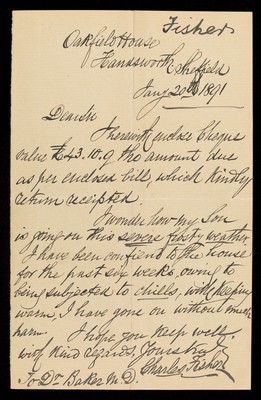 Fisher
Oakfield House
Handsworth, Sheffield
Jany 20th 1891
Dear Sir
I herewith enclose Cheque
value £43.10.9 the amount due
as per enclosed bill, which kindly
return receipted.
I wonder how my Son
is going on this severe frosty weather.
I have been confined to the house
for the past six weeks, owing to
being subjected to chills, with keeping
warm, I have gone on without much
harm.
I hope you keep well,
with kind regards, Yours truly
Charles Fisher
To Dr Baker M.D.